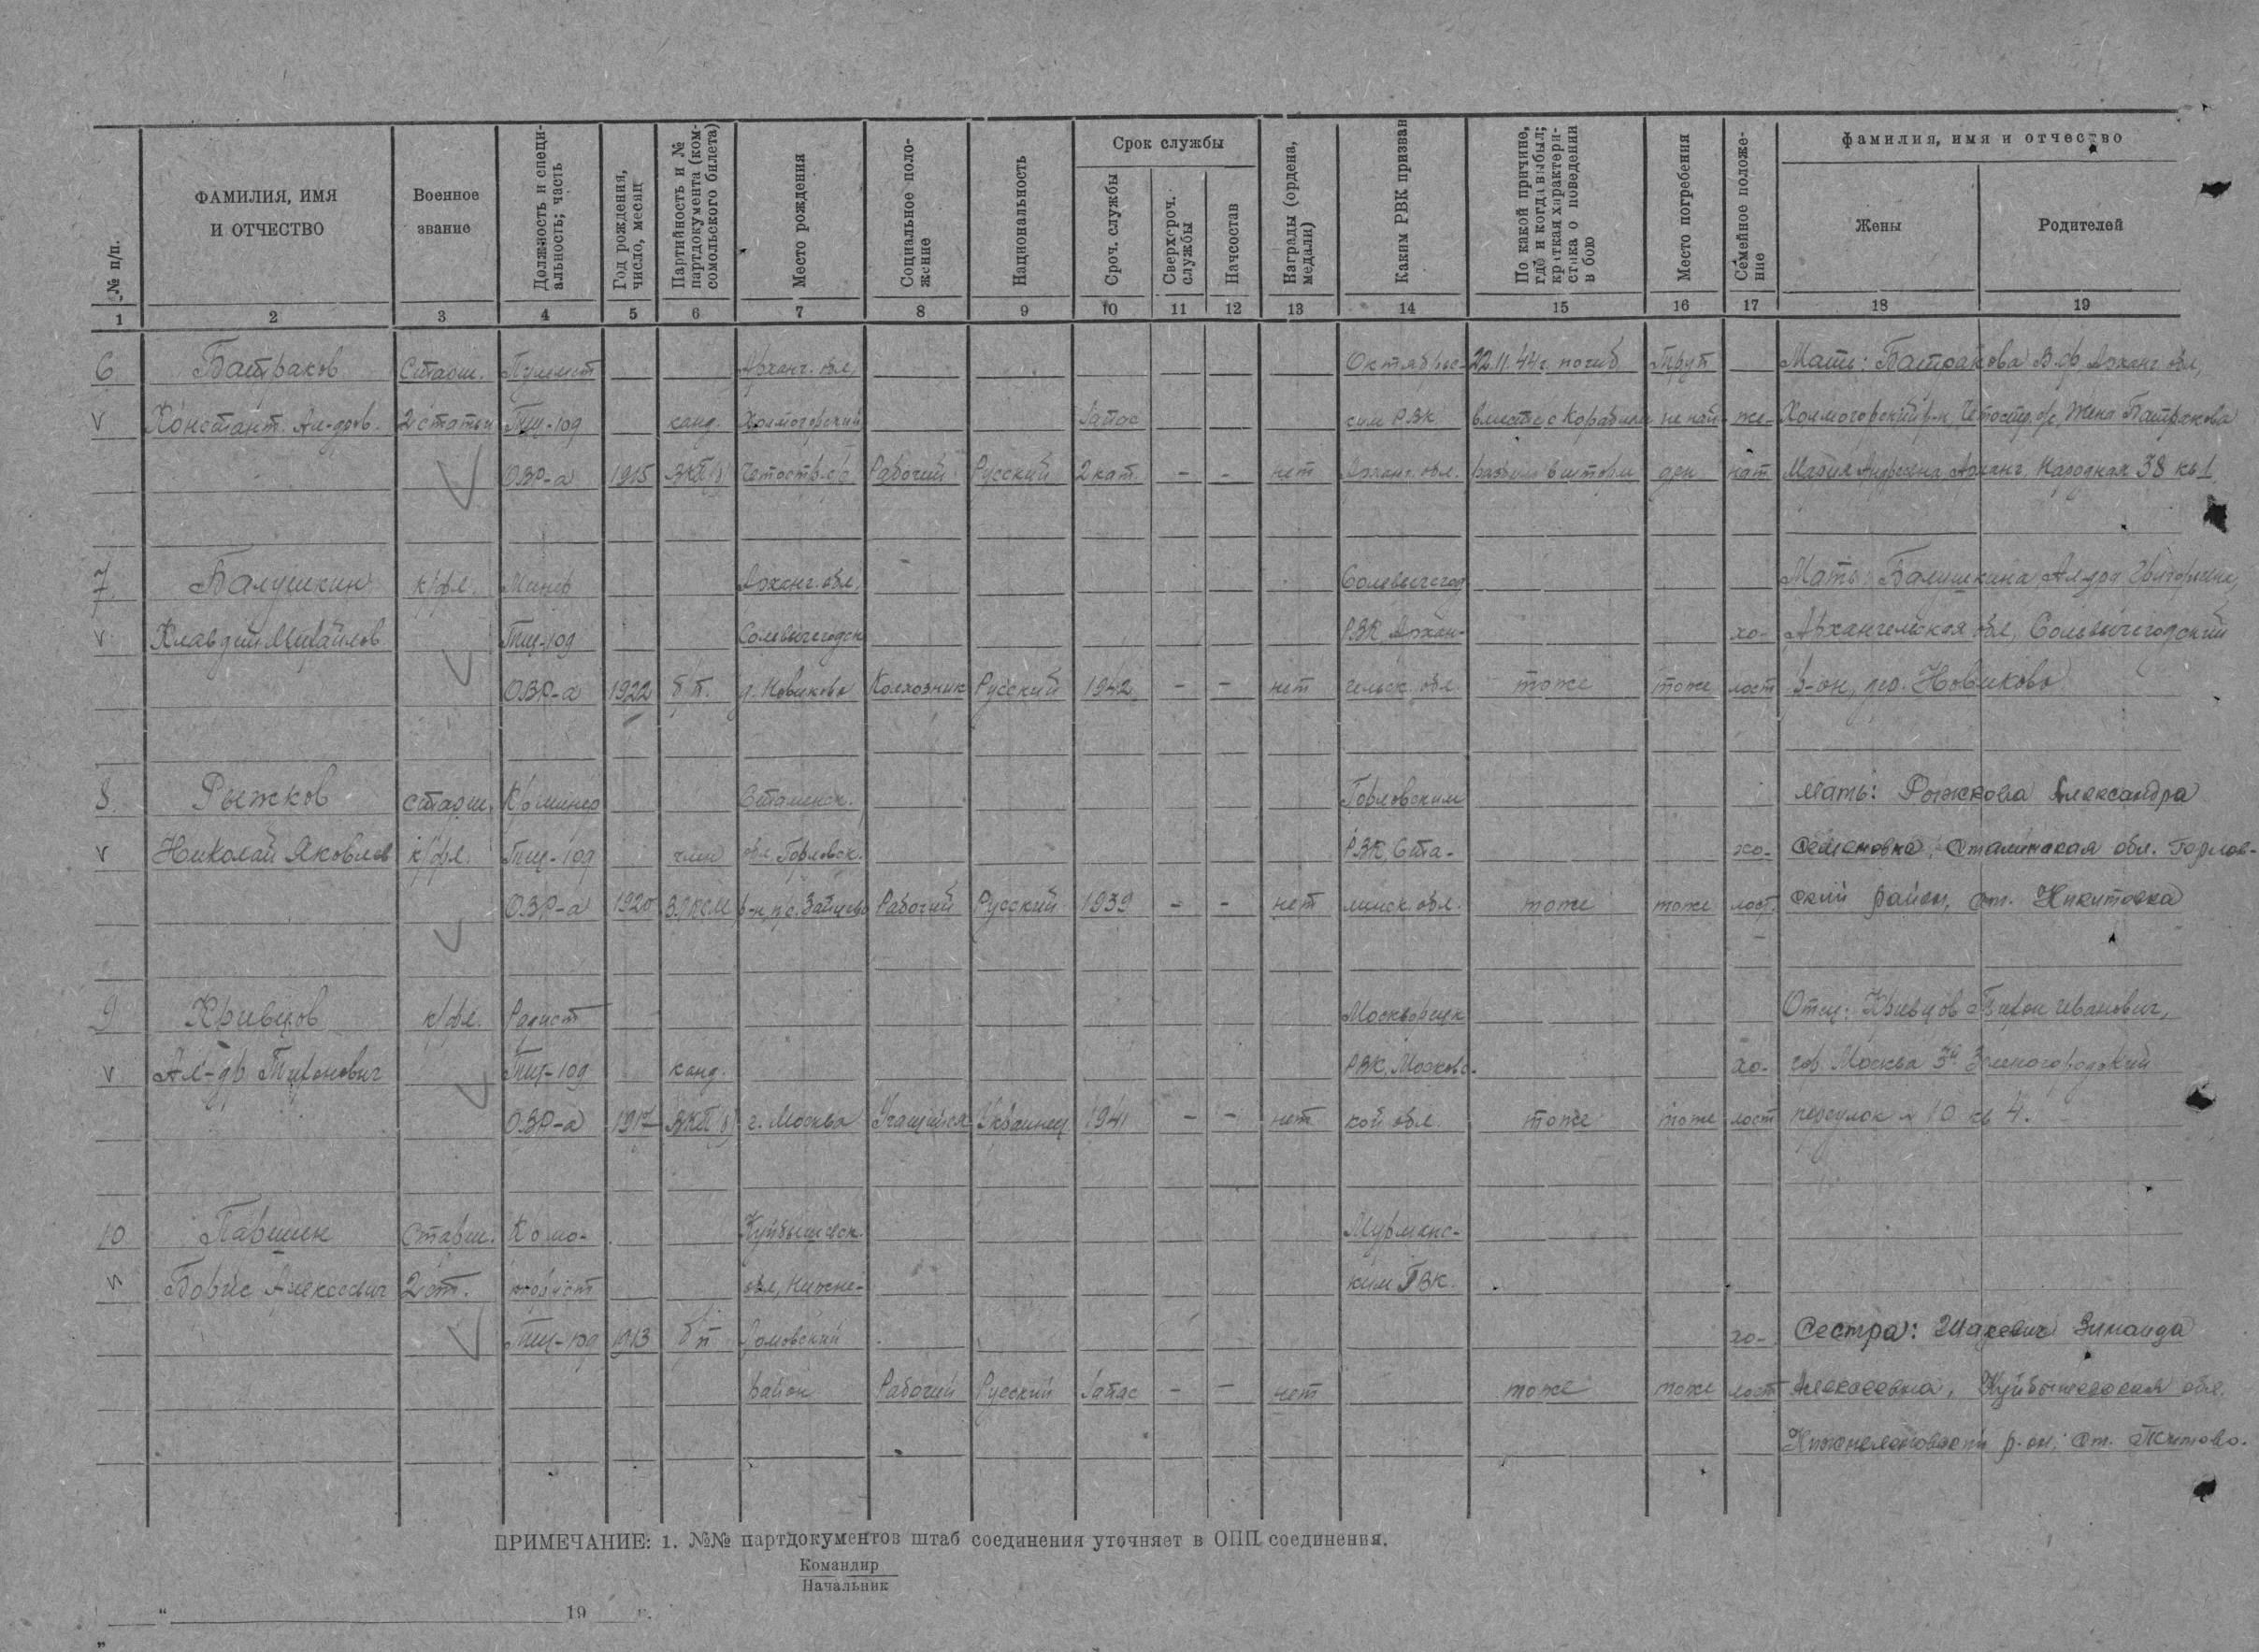 № п/п.
ФАМИЛИЯ, ИМЯ И ОТЧЕСТВО
Военное звание
Должность и специальность; часть
Год рождения, число, месяц
Партийность и № партдокумента (комсомольского билета)
Место рождения
Социальное положение
Национальность
Срок службы
Сроч. службы
Сверхсроч. службы
Начсостав
Награды (ордена, медали)
Каким РВК призван
По какой причине, где и когда выбыл; краткая характеристика о поведении в бою
Место погребения
Семейное положение
фамилия, имя и отчество
Жены
Родителей
1 2 3 4 5 6 7 8 9 10 11 12 13 14 15 16 17 18 19
6 Батраков Старш. Пулемет Арханг. обл, Октябрьс- 22.11.44г. погиб Труп Мать: Батракова В.Ф. Арханг. обл,
v Константт. Ал-дров. 2 статьи Тщ-109 канд. Холмогорский Запас ким РВК вместе с кораблем не най- же- Холмогорский р-н, Жена Батракова
ОВР-а 1915 ВКП(б) Рабочий Русский 2 кат. - - нет Арханг. обл. в шторм ден нат Мария Андреевна Арханг. Народная 38 кв 1
7 Балушкин к/фл. Минер Арханг. обл, Сольвычегод Мать: Балушкина Ал-дра Григорьевна,
v Клавдий Михайлов Тщ-109 Сольвычегодск РВК,Архан- хо- Архангельская обл, Сольвычегодский
ОВР-а 1922 б/п. д. Новиково Колхозник Русский 1942 - - нет гельск. обл. тоже тоже лост р-он, Новиково
8. Рыжков старш. Ком.минер Сталинск. Горловским Мать: Рыжкова Александра
v Николай Яковлев к/фл. Тщ-109 член обл, Горловск. РВК, Ста- хо- Семеновна, Сталинская обл. Горлов-
ОВР-а 1920 ВЛКСМ р-н, п/с. Зайцево Рабочий Русский 1939 - - нет линск. обл. тоже тоже лост. ский район, ст. Никитовка
9 Кривцов к/фл. Радист Москворецк Отец: Кривцов Тихон Иванович,
v Ал-др Тихонович Тщ-109 канд. РВК, Московс- хо- гор. Москва 3й
ОВР-а ВКП(б) г. Москва Учащийся Украинец 1941 - - нет кой обл. тоже тоже лост переулок 10 кв 4.
10 Паршин старш. Ком. Куйбышевск. Мурманс-
v Борис Алексеевич 2 ст. обл, Нижне- ким ГВК.
Тщ-109 1913 б/п ломовский хо- Сестра: Зинаида
район Рабочий Русский Запас - - нет тоже тоже лост Алексеевна, Куйбышевская обл.
Нижнеломовский р-он, ст. Титово.
ПРИМЕЧАНИЕ: 1. №№ партдокументов штаб соединения уточняет в ОПП соединения.
Командир
Начальник
„ “ 19 г.